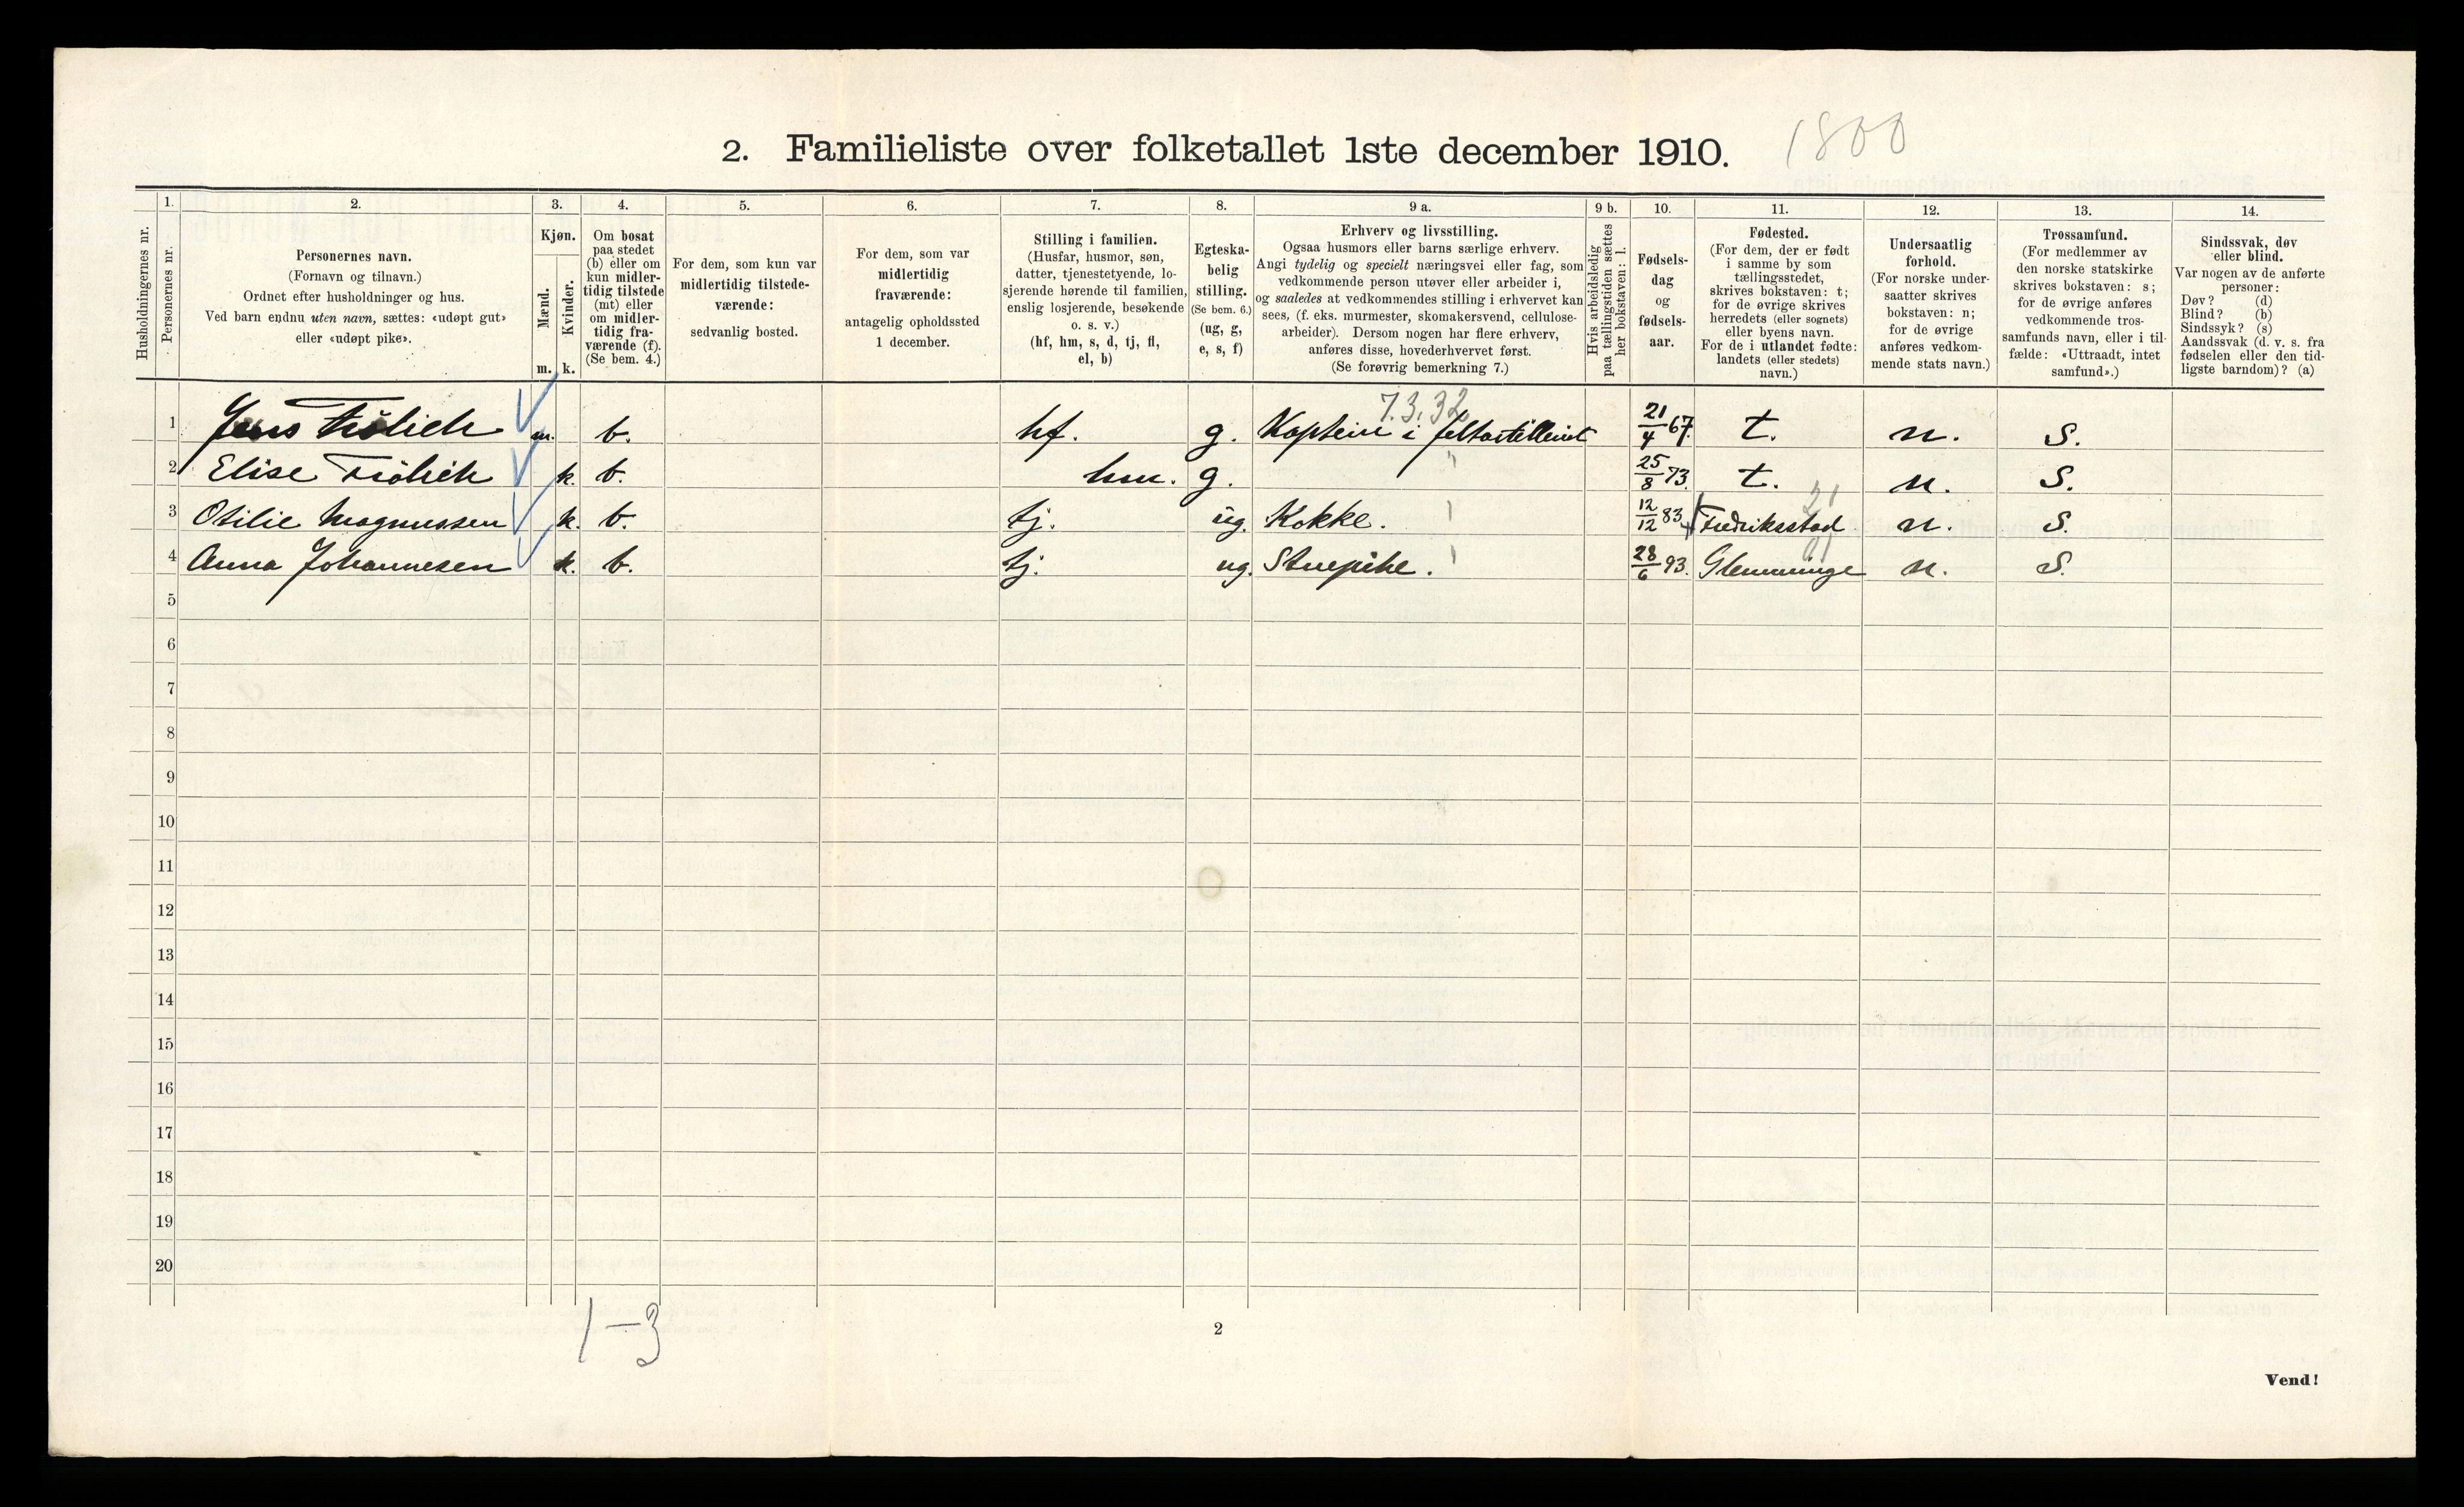 2. Familieliste over folketallet 1ste december 1910. 1800
Husholdningernes nr.
1. Personernes nr.
2. Personernes navn. (Fornavn og tilnavn.) Ordnet efter husholdninger og hus. Ved barn endnu uten navn, sættes: «udøpt gut» eller «udøpt pike».
3. Kjøn. Mænd. m. Kvinder. k.
4. Om bosat paa stedet (b) eller om kun midlertidig tilstede (mt) eller om midlertidig fraværende (f). (Se bem. 4.)
5. For dem, som kun var midlertidig tilstedeværende: sedvanlig bosted.
6. For dem, som var midlertidig fraværende: antagelig opholdssted 1 december.
7. Stilling i familien. (Husfar, husmor, søn, datter, tjenestetyende, losjerende hørende til familien, enslig losjerende, besøkende o. s. v.) (hf, hm, s, d, tj, fl, el, b)
8. Egteskabelig stilling. (Se bem. 6.) (ug, g, e, s, f)
9 a. Erhverv og livsstilling. Ogsaa husmors eller barns særlige erhverv. Angi tydelig og specielt næringsvei eller fag, som vedkommende person utøver eller arbeider i, og saaledes at vedkommendes stilling i erhvervet kan sees, (f. eks. murmester, skomakersvend, cellulosearbeider). Dersom nogen har flere erhverv, anføres disse, hovederhvervet først. (Se forøvrig bemerkning 7.)
9 b. Hvis arbeidsledig paa tællingstiden sættes her bokstaven: l.
10. Fødselsdag og fødselsaar.
11. Fødested. (For dem, der er født i samme by som tællingsstedet, skrives bokstaven: t; for de øvrige skrives herredets (eller sognets) eller byens navn. For de i utlandet fødte: landets (eller stedets) navn.)
12. Undersaatlig forhold. (For norske undersaatter skrives bokstaven: n; for de øvrige anføres vedkommende stats navn.)
13. Trossamfund. (For medlemmer av den norske statskirke skrives bokstaven: s; for de øvrige anføres vedkommende trossamfunds navn, eller i tilfælde: «Uttraadt, intet samfund».)
14. Sindssvak, døv eller blind. Var nogen av de anførte personer: Døv? (d) Blind? (b) Sindssyk? (s) Aandssvak (d. v. s. fra fødselen eller den tidligste barndom)? (a)
7.3.32
1 Jens Frölich m. b. hf. g. Kaptein i feltartilleriet 21/4 67. t. n. S.
2 Elise Frölich k. b. hm. g. 25/8 73. t. n. S.
21
3 Otilie Magnussen k. b. tj. ug. Kokke. 12/12 83 Fredriksstad n. S.
01
4 Anna Johannesen k. b. tj. ug. Stuepike. 28/6 93. Glemminge n. S.
5
6
7
8
9
10
11
12
13
14
15
16
17
18
19
20
1-3
2
Vend!